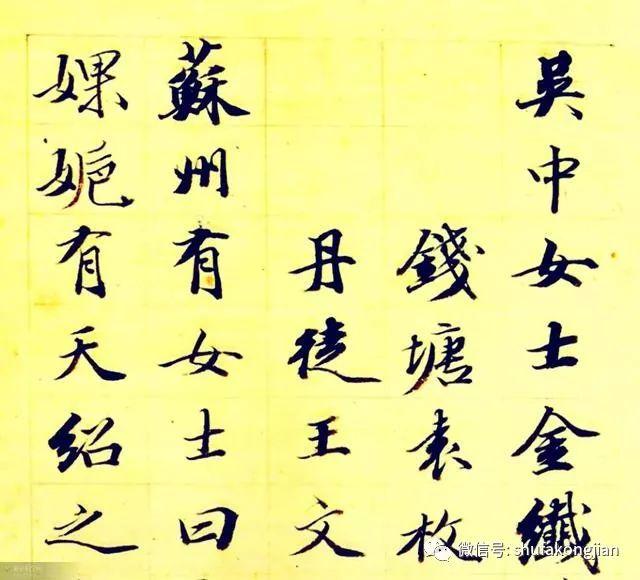 吳中女士金纖
錢塘袁枚
丹徒王文
蘇州有女士曰
婐㚰有天紹之
微信号: shufakongjian